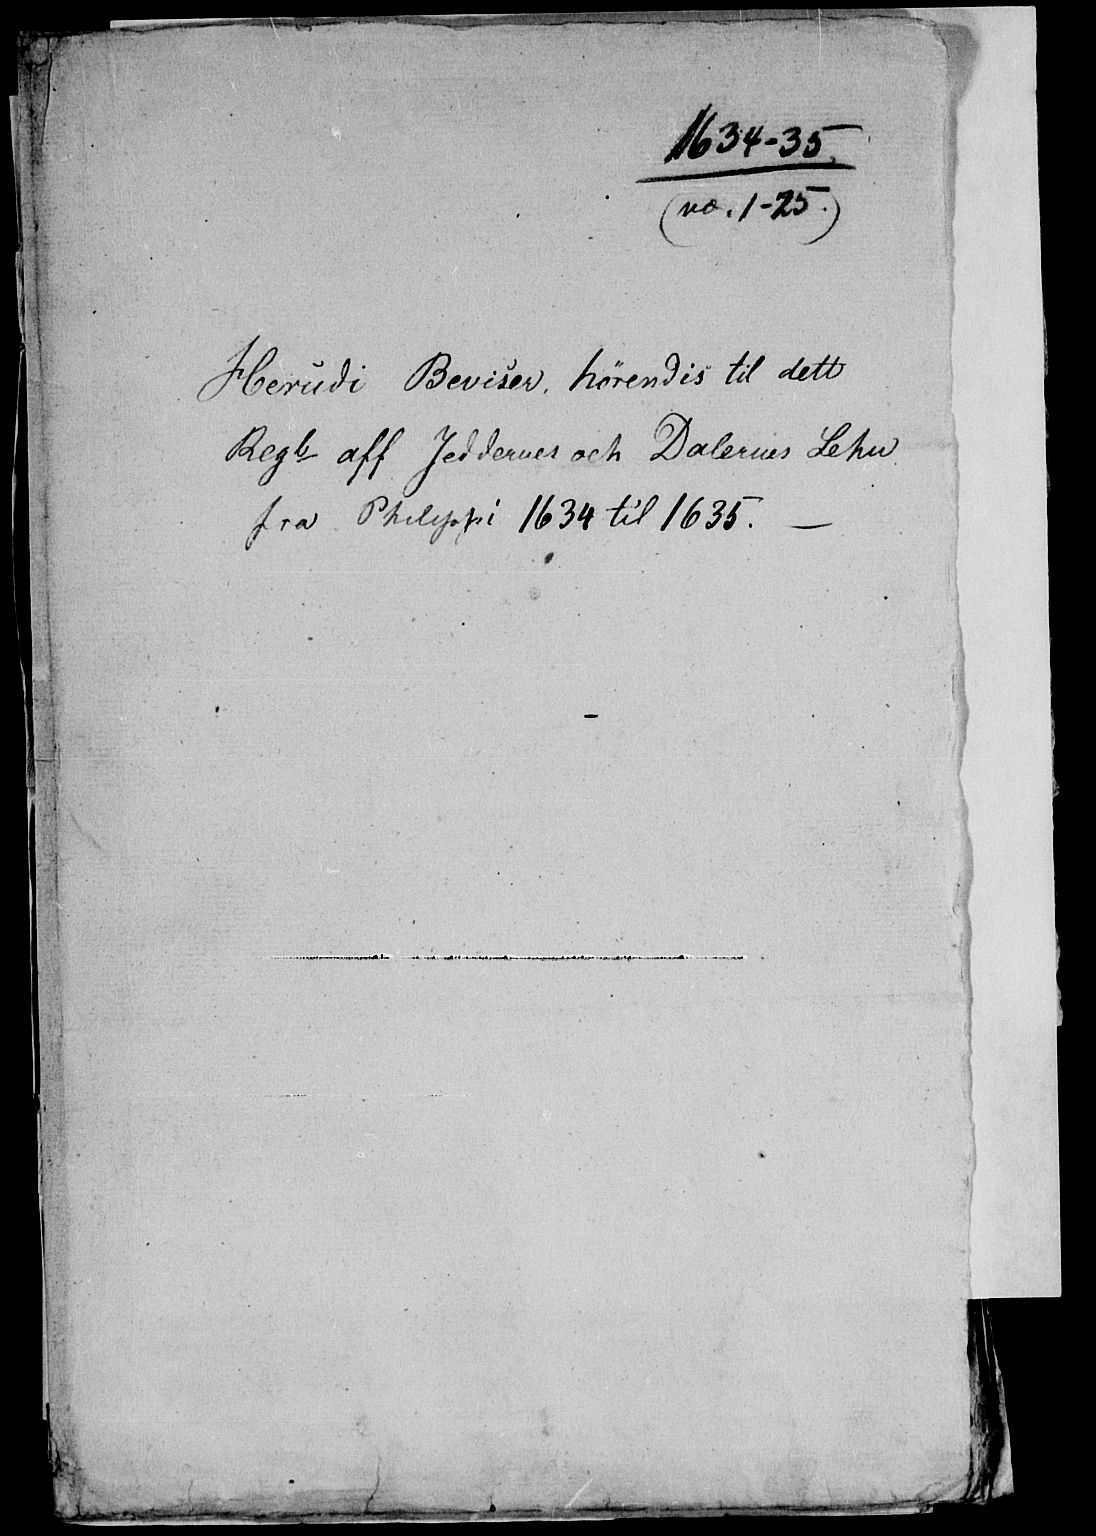 1634-35.
(no. 1-25.)
Herudi Beviser, hörendis til dett
Regb aff Jeddernes och Dalernes Lehn
fra Philippi 1634 til 1635. —